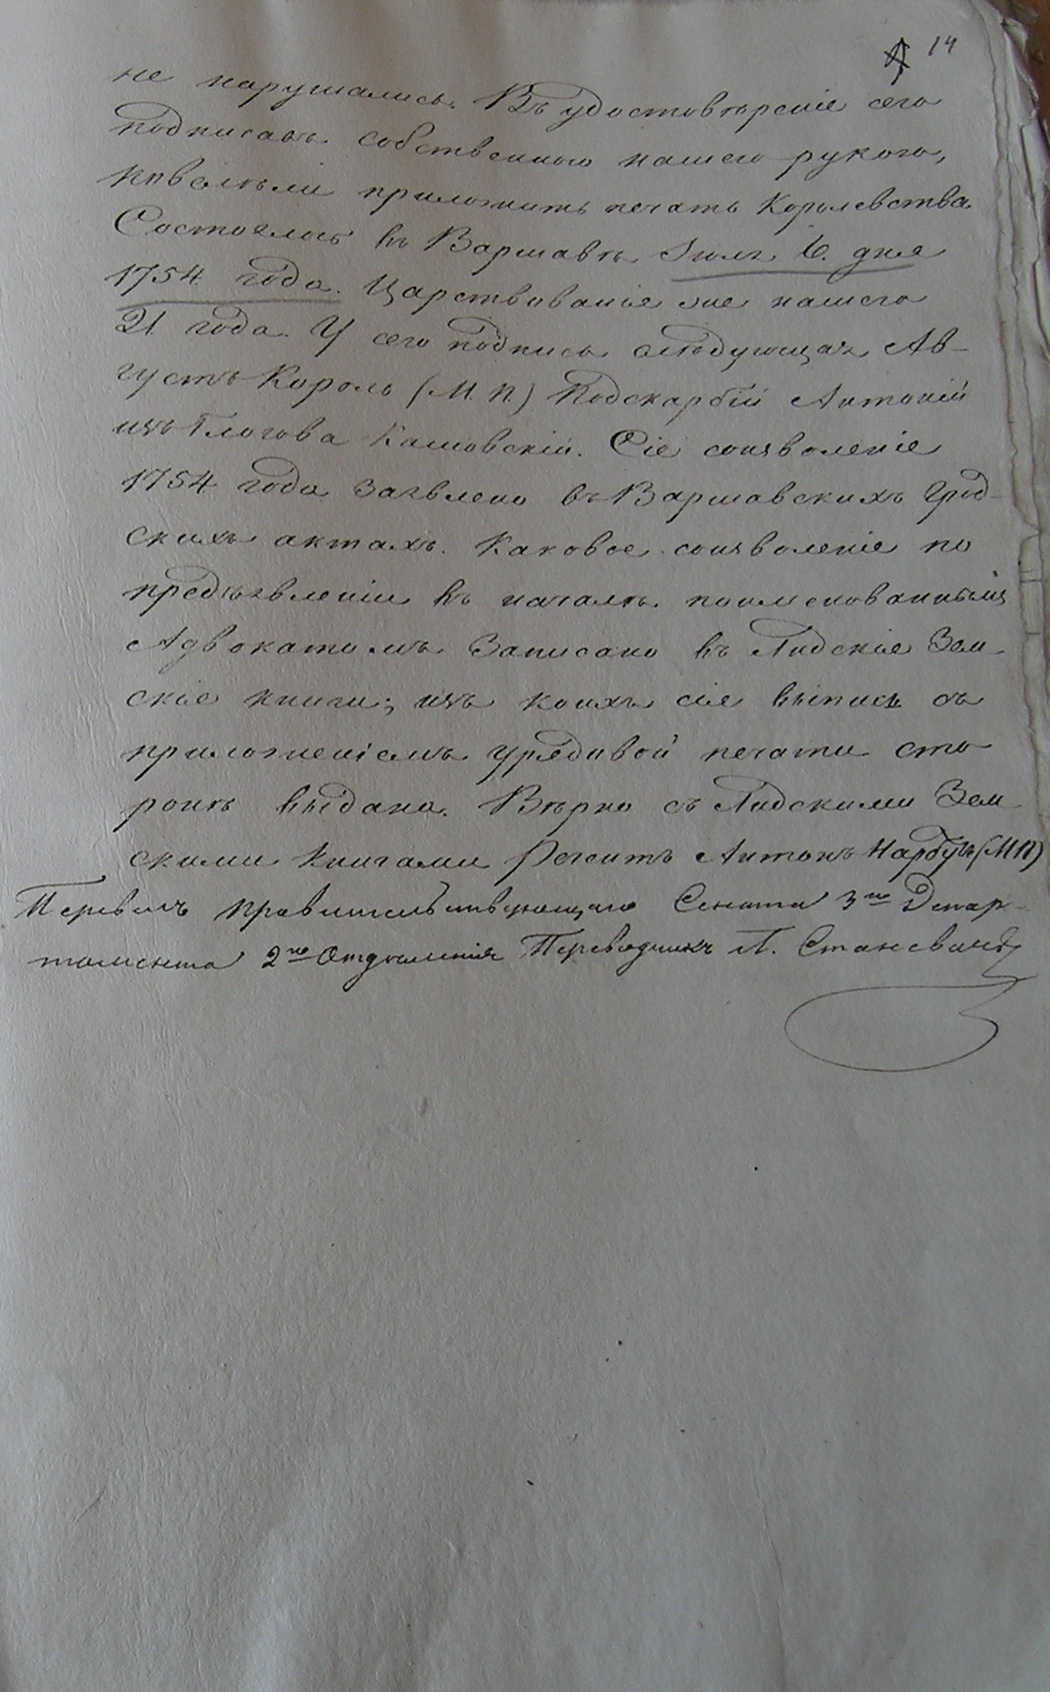 14
не нарушались. Въ удостовѣреніе сего
подписавъ собственною нашею рукою,
повелѣли приложить печать Королевства.
Состоялось въ Варшавѣ Іюля 6. дня
1754 года. Царствованія же нашего
21 года. У сего подпись слѣдующая Ав-
густъ Король (М. П.) Подскарбій Антоній
изъ Глогова Кашовскій. Сіе соизволеніе
1754 года заявлено въ Варшавскихъ Грод-
скихъ актахъ. Каковое соизволеніе по
предъявленіи въ началѣ поименованнымъ
Адвокатомъ Записано въ Лидскіе Зем-
скіе книги; изъ коихъ сія выпись съ
приложеніемъ урядовой печати сто
ронѣ выдана. Вѣрно съ Лидскими Зем-
скими Книгами Регентъ Антонъ Нарбутъ (М П)
Перевелъ Правительствующаго Сената 3го Депар-
тамента 2го Отдѣленія Переводчикъ Л. Станевичъ